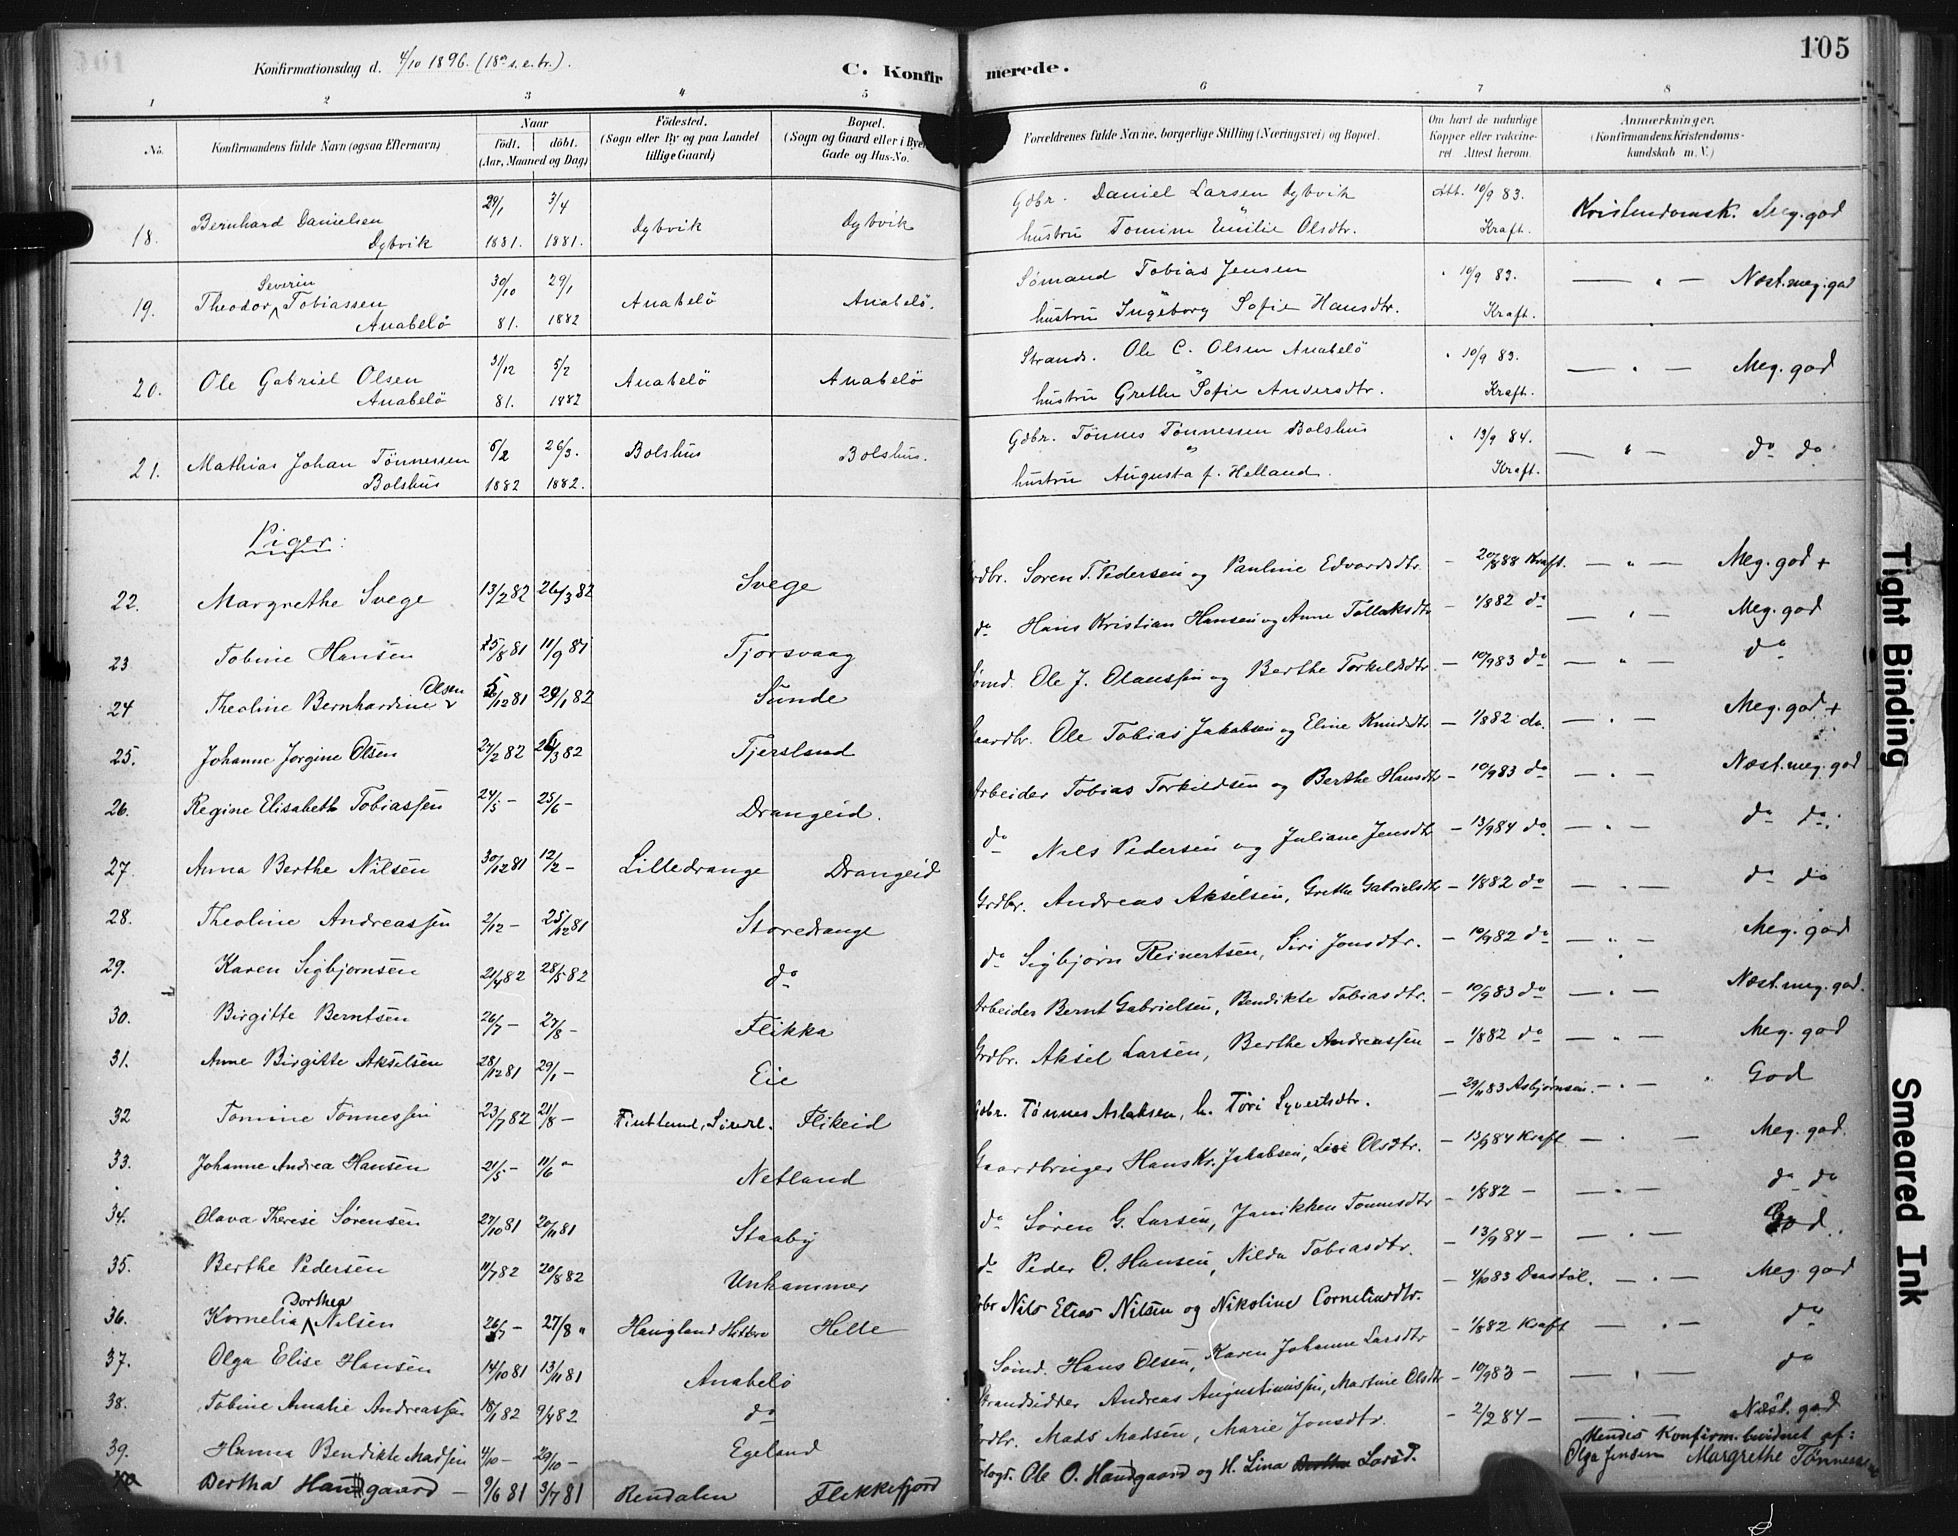 105
Konfirmationsdag d. 4/10 1896. (18de s. e. tr.).
C. Konfirmerede.
1 2 3 4 5 6 7 8
No. Konfirmandens fulde Navn (ogsaa Efternavn) Naar födt. döbt. (Aar, Maaned og Dag) Födested. (Sogn eller By og paa Landet tillige Gaard) Bopæl. (Sogn og Gaard eller i Byen Gade og Hus-No. Forældrenes fulde Navne, borgerlige Stilling (Næringsvei) og Bopæl. Om havt de naturlige Kopper eller vakcineret Attest herom. Anmerkninger. (Konfirmandens Kristendomskundskab m. V.)
18. Bernhard Danielsen Dybvik 29/1 1881. 3/4 1881. Dybvik Dybvik Gdbr. Daniel Larsen Dybvik hustru Tomine Emilie Olsdtr. Att. 10/9 83. Kraft. Kristendomsk. Meg. god
19. Theodor Severin Tobiassen Anabelö 30/10 81. 29/1 1882 Anabelö Anabelö. Sömand Tobias Jensen hustru Ingeborg Sofie Hansdtr. " 10/9 83. Kraft. — " — Næst. meg. god
20. Ole Gabriel Olsen Anabelö 31/12 81. 5/2 1882 Anabelö Anabelö Strands. Ole C. Olsen Anabelö hustru Grethe Sofie Andersdtr. " 10/9 83. Kraft. — " — Meg. god
21. Mathias Johan Tönnessen Bolshus 6/2 1882 26/3. 1882. Bolshus Bolshus. Gdbr. Tönnes Tönnessen Bolshus hustru Augusta f. Helland. " 13/9 84. Kraft. — " — do do
Piger:
22. Margrethe Svege 13/2 82 26/3 82 Svege Grdbr. Soren T. Pedersen og Pauline Edvardsdtr. — 20/8 88 Kraft. — " — Meg. god +
23 Tobine Hansen 25/8 81 11/9 81 Tjorsvaag do Hans Kristian Hansen og Anne Tollaksdtr — 1/8 82 do — " — Meg. god
24 Theoline Bernhardine Olsen 5/12 81 29/1 82 Sunde Sømd. Ole J. Olaussen og Berthe Torkildsdtr. — 10/9 83 do — " — do
25. Johanne Jorgine Olsen 27/2 82 26/3 82 Tjersland Gaardbr. Ole Tobias Jakobsen og Eline Knudsdtr — 1/8 82 do. — " — Meg. god +
26. Regine Elisabeth Tobiassen 24/5 — 25/6 — Drangeid. Arbeider Tobias Torkildsen og Berthe Hansdtr — 10/9 83 do — " — Næst. meg. god
27. Anna Berthe Nilsen 30/12 81 12/2 — Lilledrange Drangeid do Nils Pedersen og Juliane Jensdtr — 13/9 84 do — " — do do.
28. Theoline Andreassen 2/12 — 25/12 81 Storedrange Grdbr. Andreas Akselsen, Grethe Gabrielsdtr — 1/8 82 do — " — do do
29. Karen Sigbjornsen 21/4 82 28/5 82 do do Sigbjørn Reinertsen, Siri Jonsdtr. — 10/9 82 do — " — Meg. god
30. Birgitte Berntsen 26/7 — 27/8 — Flikka Arbeider Bernt Gabrielsen, Bendikte Tobiasdtr. — 10/9 83 do — " — Næst. meg. god.
31. Anne Birgitte Akselsen 28/12 81 29/1 — Eie Grdbr. Aksel Larsen, Berthe Andreassen — 1/8 82 do — " — Meg. god
32 Tomine Tonnessen 23/7 82 21/8 — Fintland, Siredl. Flikeid Gdbr. Tønnes Aslaksen, h. Töri Syvertsdtr. — 29/11 83 Asbjørnsen. — " — God
33. Johanne Andrea Hansen 21/5 — 11/6 — Netland Gaardbruger Hans Kr. Jakobsen, Lise Olsdtr. — 13/9 84 Kraft — " — Meg. god.
34. Olava Therese Sørensen 27/10 81 20/11 81 Staaby do Søren G. Larsen, Janikken Tonnesdtr — 1/8 82 — — " — do do
35. Berthe Pedersen 11/7 82 20/8 82 Unhammer do Peder O. Hansen, Nilda Tobiasdtr. — 13/9 84 — — " — God.
36. Kornelia Dorthea Nilsen 26/7 — 27/8 " Haugland Hittero Helle Gdbr Nils Elias Nilsen og Nikoline Corneliusdtr. — 4/10 83 Daastøl. — " — Meg. god
37. Olga Elise Hansen 14/10 81 13/11 81 Anabelö Sømd. Hans Olsen, Karen Johanne Larsdtr — 1/8 82 Kraft — " — do
38. Tobine Amalie Andreassen 18/1 82 9/4 82 do Strandsidder Andreas Augustinussen, Martine Olsdtr — 10/9 83 — — " — do
39. Hanna Bendikte Madsen 4/10 — 29/10 — Egeland Grdbr. Mads Madsen, Marie Jonsdtr. — 2/2 84 — — " — Næst. god
40 Bertha Handgaard — 9/6 81 3/7 81 Rendalen Flekkefjord Ole O. Handgaard og H. Lina Larsd. Hendes Konfirm. bevidnet af: Olga Jensen Margrethe Tønnessen
Tight Binding
Smeared Ink